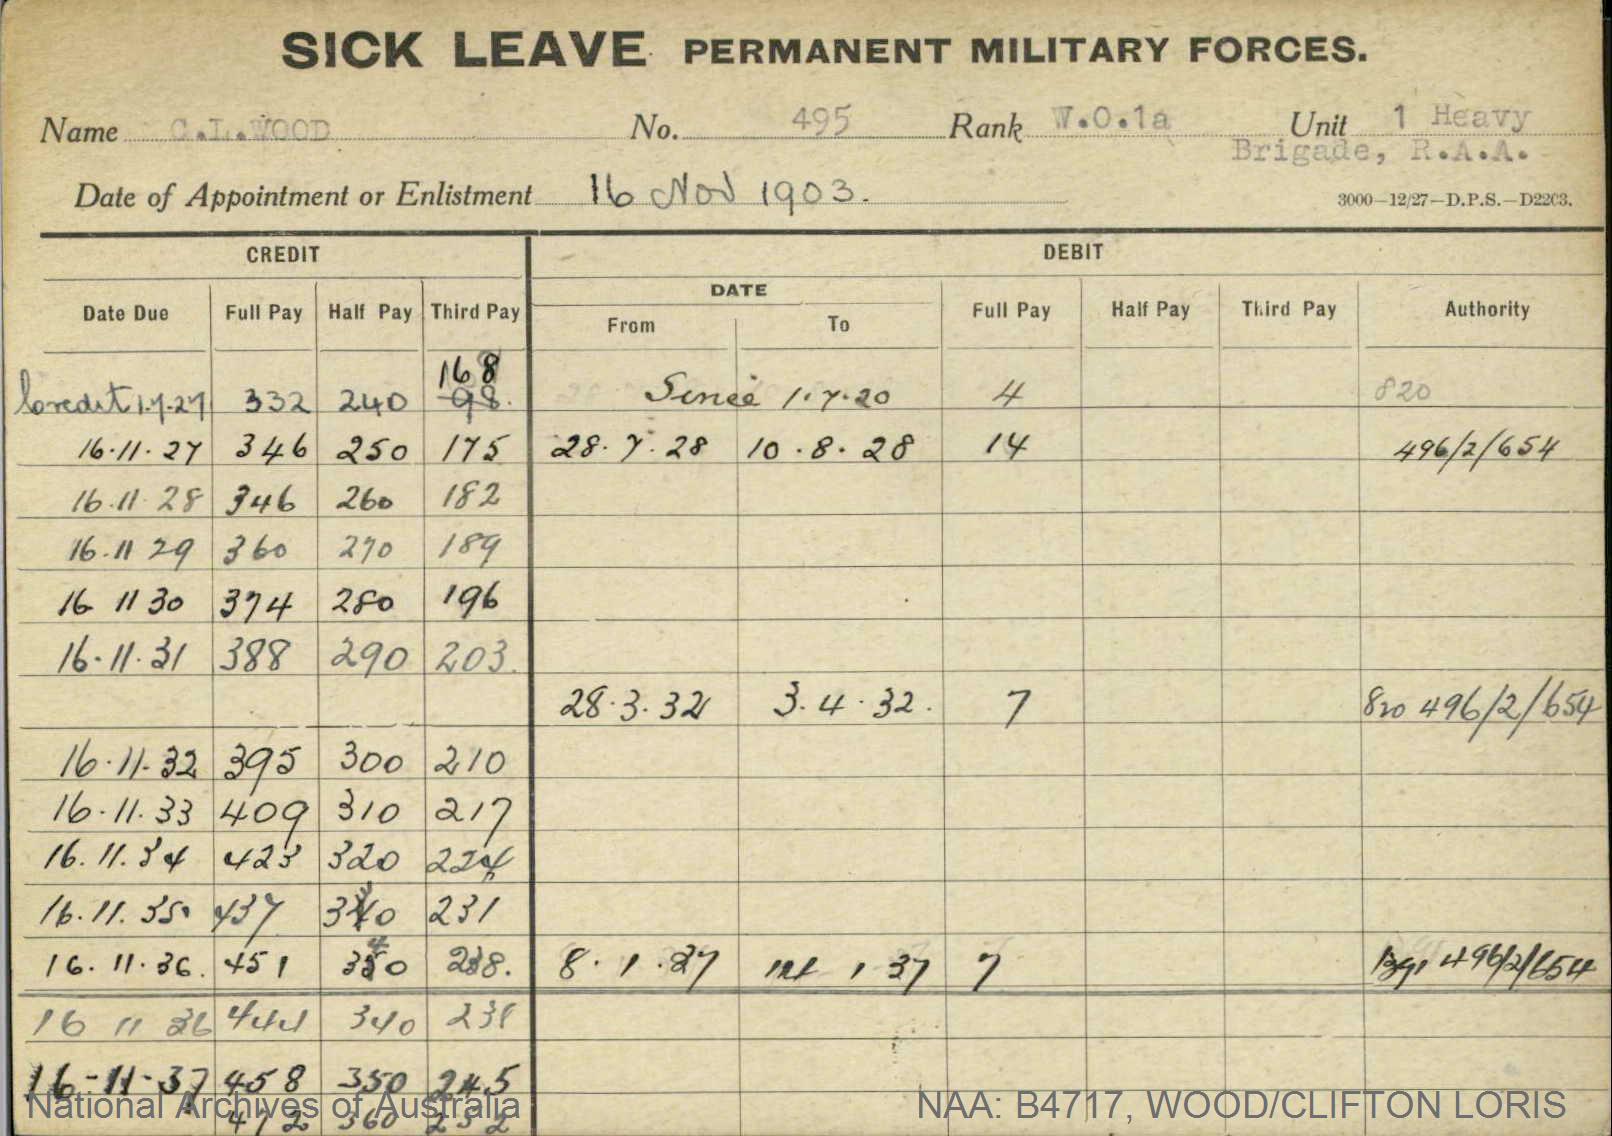 SICK LEAVE PERMANENT MILITARY FORCES.
Name C.L.WOOD No. 495 Rank W.O.1a Unit 1 Heavy
Brigade, R.A.A.
Date of Appointment or Enlistment 16 Nov 1903. 3000—12/27—D.P.S.—D2203.
CREDIT DEBIT
DATE
Date Due Full Pay Half Pay Third Pay From To Full Pay Half Pay Third Pay Authority
168
Credit 1.7.27 332 240 98. Since 1.7.20 4 820
16.11.27 346 250 175 28.7.28 10.8.28 14 496/2/654
16.11.28 346 260 182
16.11 29 360 270 189
16 11 30 374 280 196
16.11.31 388 290 203.
28.3.32 3.4.32. 7 820 496/2/654
16.11.32 395 300 210
16.11.33 409 310 217
16.11.34 423 320 224
16.11.35 437 330 231
16.11.36. 451 340 238. 8.1.37 14 1 37 7 496/2/654
16 11 36 444 340 238
16-11-37 458 350 245
472 360 252
National Archives of Australia NAA: B4717, WOOD/CLIFTON LORIS